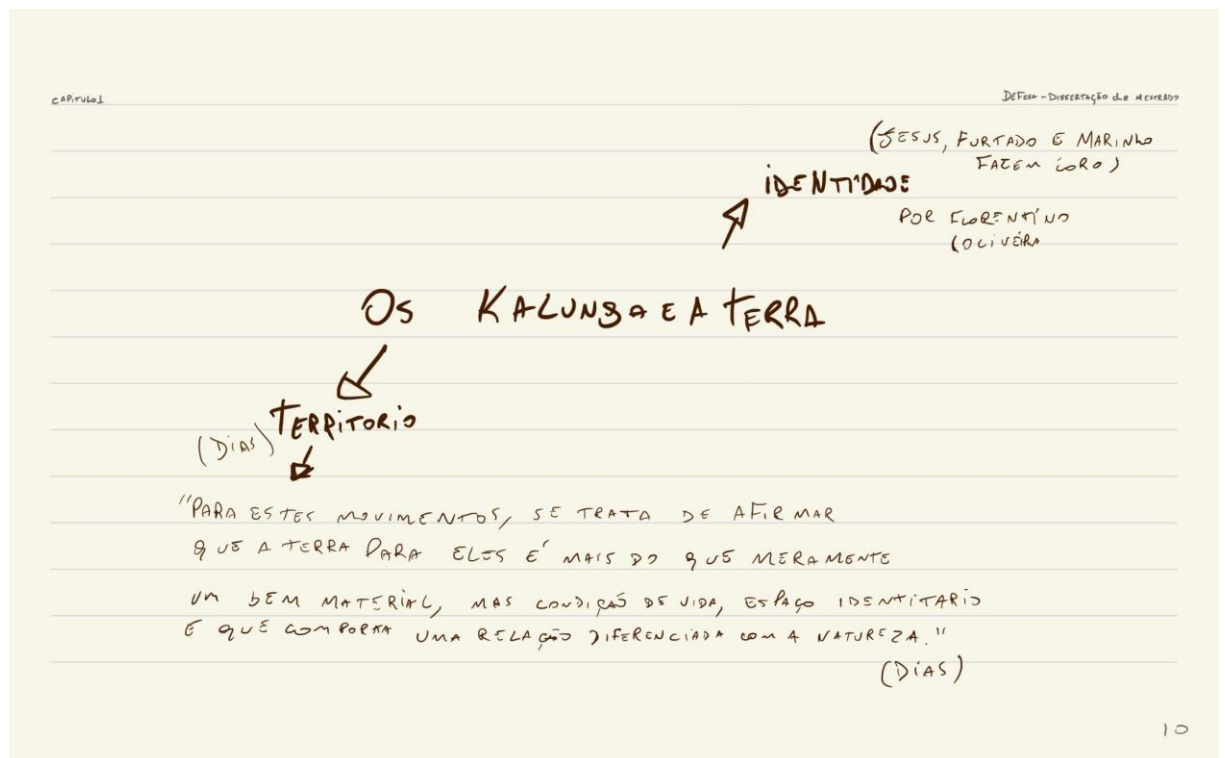 CAPITULO 1
DEFESA - DISSERTAÇÃO de MESTRADO
(JESUS, FURTADO E MARINHO
FAZEM CORO)
IDENTIDADE
POR FLORENTINO
(OLIVEIRA
OS KALUNGA E A TERRA
TERRITORIO
(DIAS)
"PARA ESTES MOVIMENTOS, SE TRATA DE AFIRMAR
QUE A TERRA PARA ELES É MAIS DO QUE MERAMENTE
UM BEM MATERIAL, MAS CONDIÇÃO DE VIDA, ESPAÇO IDENTITARIO
E QUE COMPORTA UMA RELAÇÃO DIFERENCIADA COM A NATUREZA."
(DIAS)
10